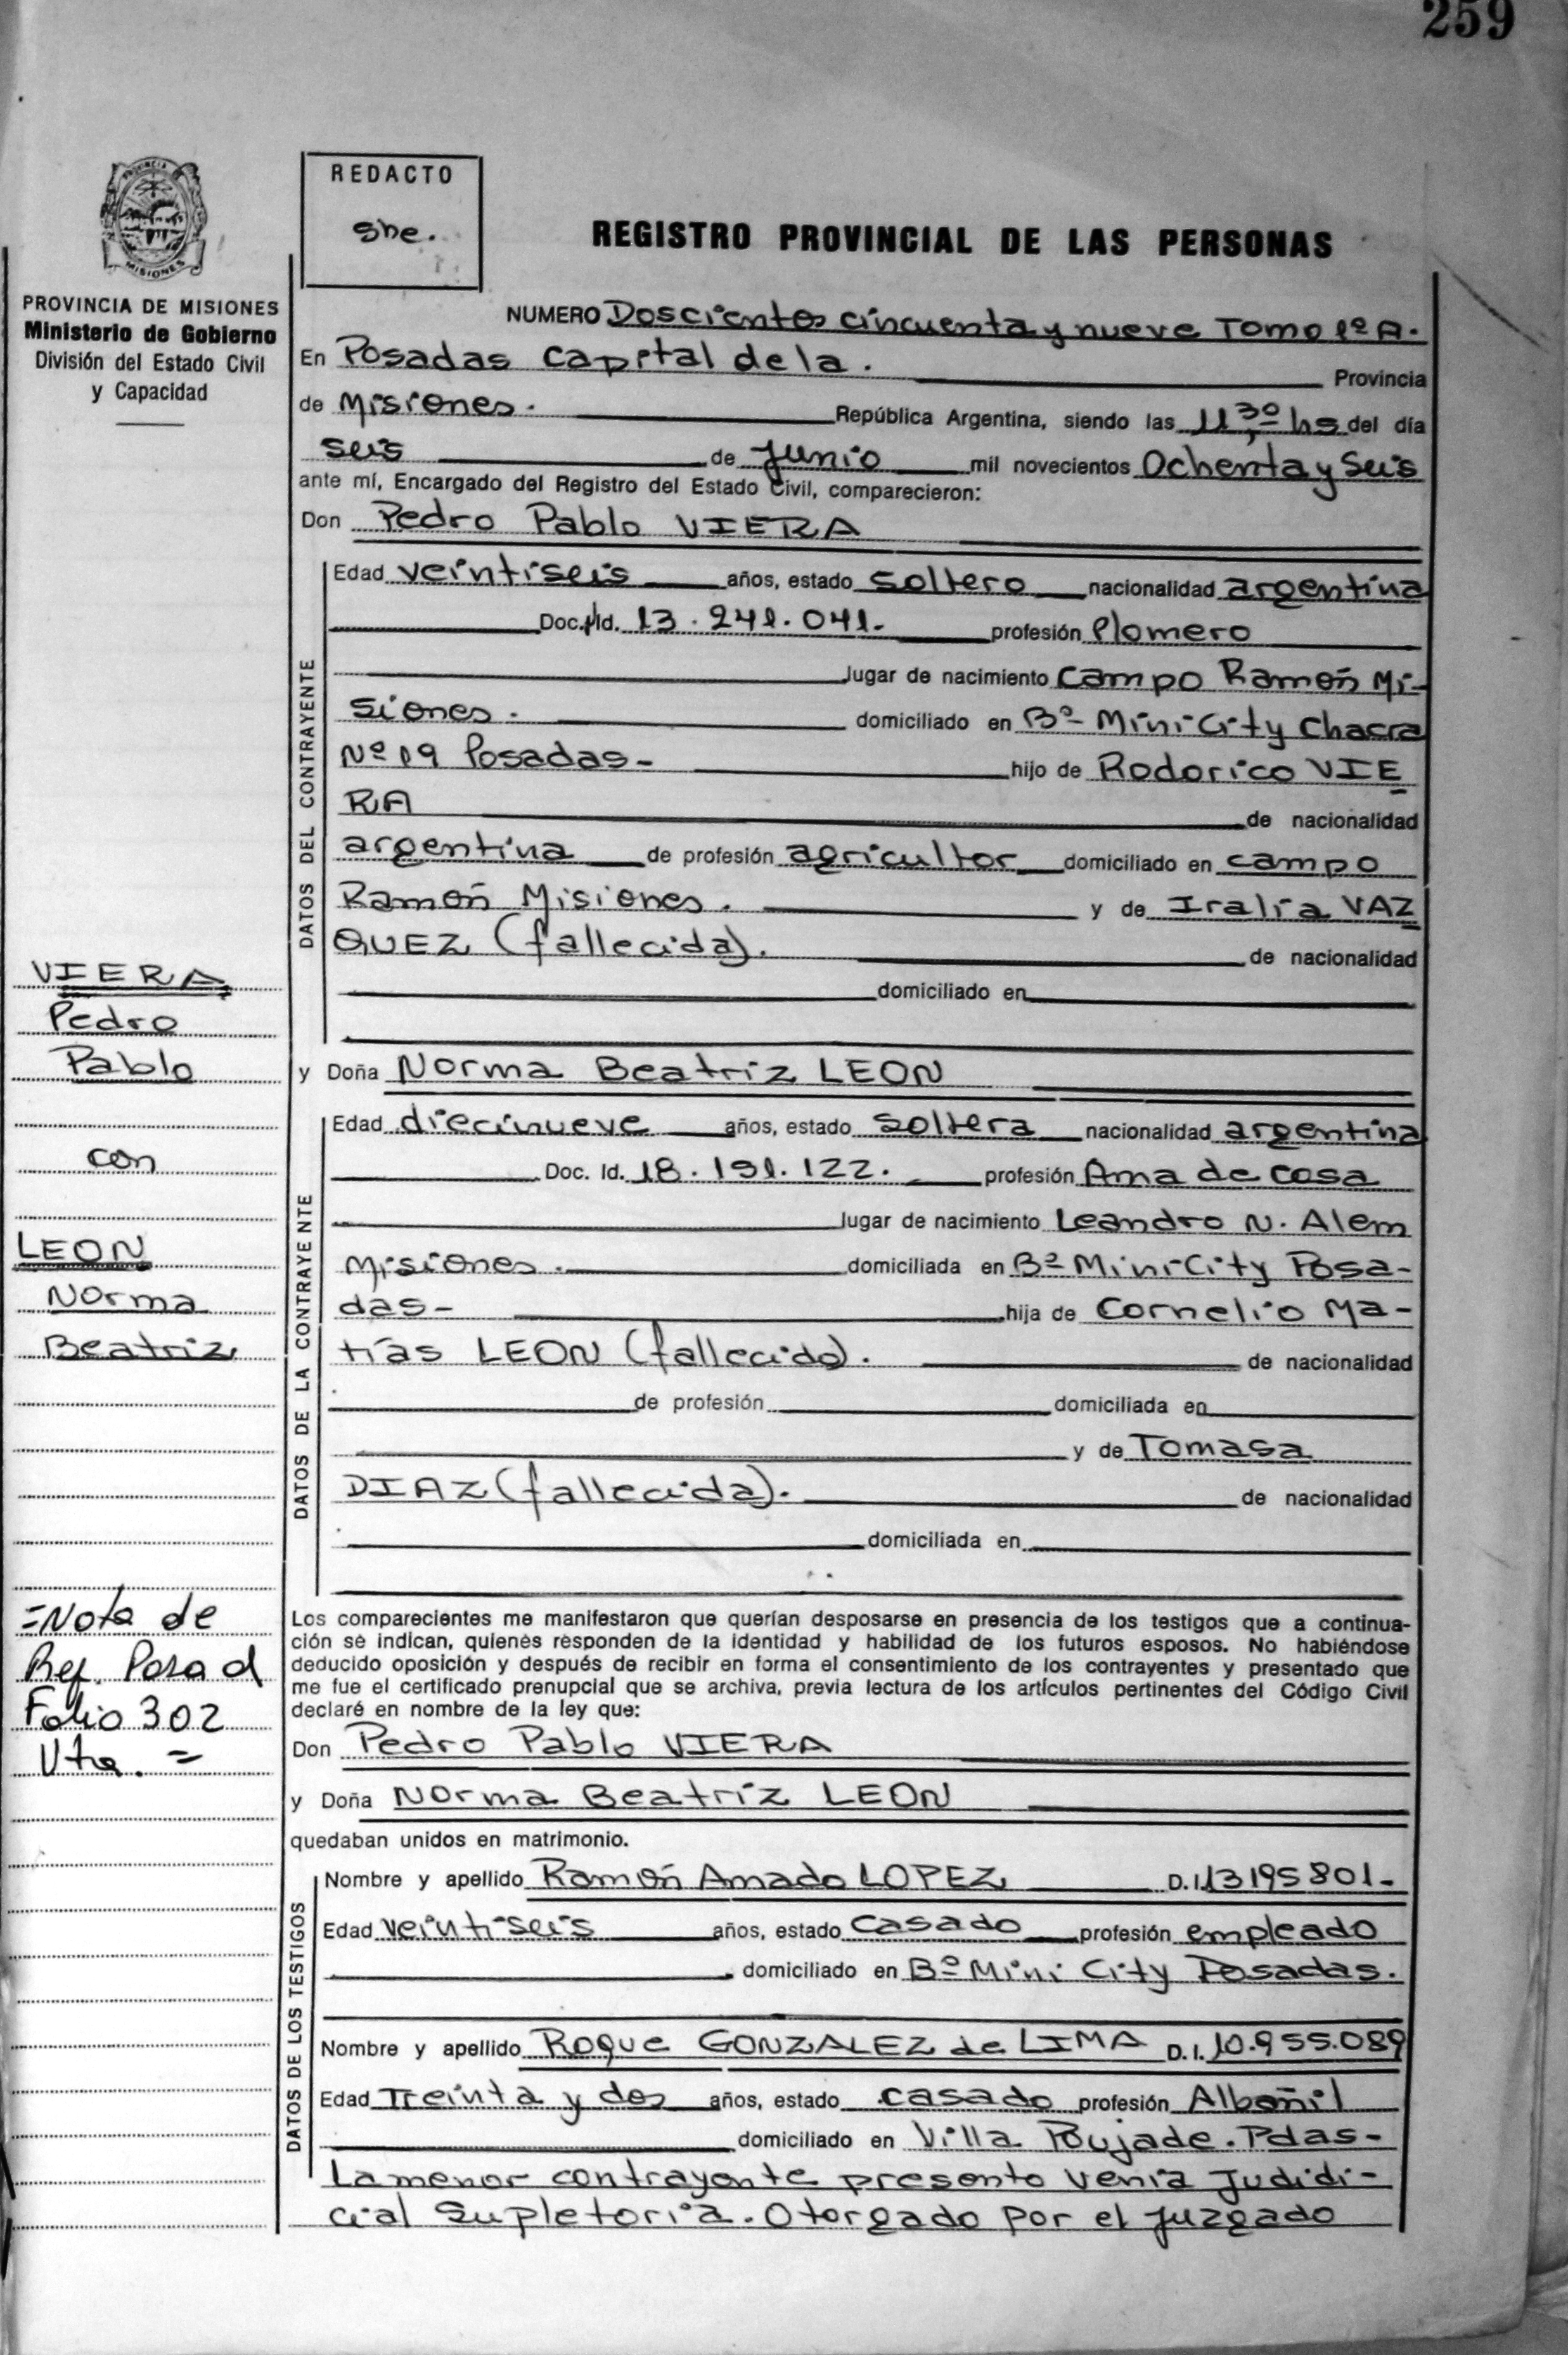 259
PROVINCIA
MISIONES
PROVINCIA DE MISIONES
Ministerio de Gobierno
División del Estado Civil
y Capacidad
REDACTO
REGISTRO PROVINCIAL DE LAS PERSONAS
NUMERO Doscientos cincuenta y nueve Tomo 1º A.
En Posadas Capital de la. Provincia
de Misiones. República Argentina, siendo las 11,30 hs del día
seis de Junio mil novecientos Ochenta y Seis
ante mí, Encargado del Registro del Estado Civil, comparecieron:
Don Pedro Pablo VIERA
DATOS DEL CONTRAYENTE
Edad veintiseis años, estado soltero nacionalidad argentina
Doc. Id. 13.241.041. profesión Plomero
lugar de nacimiento Campo Ramón Mi-
siones. domiciliado en Bº Mini City Chacra
Nº 19 Posadas- hijo de Rodorico VIE
RA de nacionalidad
argentina de profesión agricultor domiciliado en campo
Ramón Misiones. y de Iralia VAZ
QUEZ (fallecida). de nacionalidad
domiciliado en
y Doña Norma Beatriz LEON
DATOS DE LA CONTRAYENTE
Edad diecinueve años, estado soltera nacionalidad argentina
Doc. Id. 18.191.122. profesión Ama de casa
lugar de nacimiento Leandro N. Alem
Misiones. domiciliada en Bº Mini City Posa-
das- hija de Cornelio Ma-
tías LEON (fallecido). de nacionalidad
de profesión domiciliada en
y de Tomasa
DIAZ (fallecida). de nacionalidad
domiciliada en
Los comparecientes me manifestaron que querían desposarse en presencia de los testigos que a continua-
ción se indican, quienes responden de la identidad y habilidad de los futuros esposos. No habiéndose
deducido oposición y después de recibir en forma el consentimiento de los contrayentes y presentado que
me fue el certificado prenupcial que se archiva, previa lectura de los artículos pertinentes del Código Civil
declaré en nombre de la ley que:
Don Pedro Pablo VIERA
y Doña Norma Beatriz LEON
quedaban unidos en matrimonio.
DATOS DE LOS TESTIGOS
Nombre y apellido Ramón Amado LOPEZ D.I. 13195801-
Edad veintiseis años, estado casado profesión empleado
domiciliado en Bº Mini City Posadas.
Nombre y apellido Roque GONZALEZ de LIMA D.I. 10.955.089
Edad Treinta y dos años, estado casado profesión Albañil
domiciliado en Villa Poujade. Pdas-
La menor contrayente presento venia Judidi-
cial Supletoria. Otorgado por el juzgado
VIERA
Pedro
Pablo
con
LEON
Norma
Beatriz
=Nota de
Ref. Pasa al
Folio 302
Vta. =